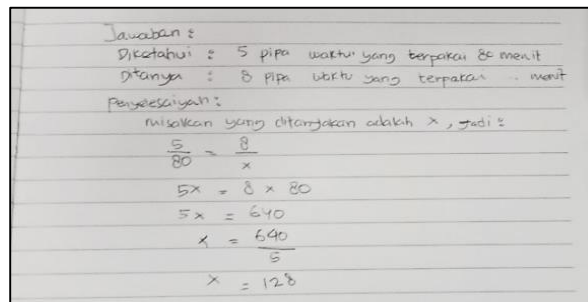 Jawaban :
Diketahui : 5 pipa waktu yang terpakai 80 menit
Ditanya : 8 pipa waktu yang terpakai .. menit
Penyelesaiyan :
misalkan yang ditanyakan adalah x, Jadi :
5/80 = 8/x
5x = 8 x 80
5x = 640
x = 640/5
x = 128